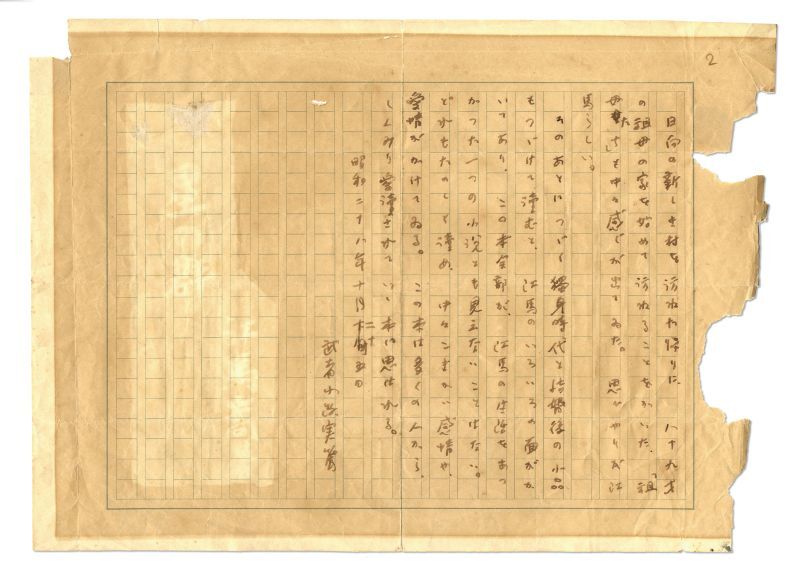 2
日向の新しき村を訪ねた帰りに、八十九才
の祖母の家を始めて訪ねることをかいた、「祖
母 た も中々感じが出てゐた。思ひやりが江
馬らしい。
そのあとにつゞく獨身時代と結婚後の小品
もつゞけて讀むと、江馬のいろいろの面がか
いてあり、この本全部が、江馬の生活をあつ
かつた一つの小説とも見えないことはない。
どれもたのしと讀め、中々こまかい感情や、
愛情がかけてゐる。この本は多くの人から、
しんみり愛讀されていゝ本に思はれる。
昭和二十八年十月二十五日
武者小路実篤